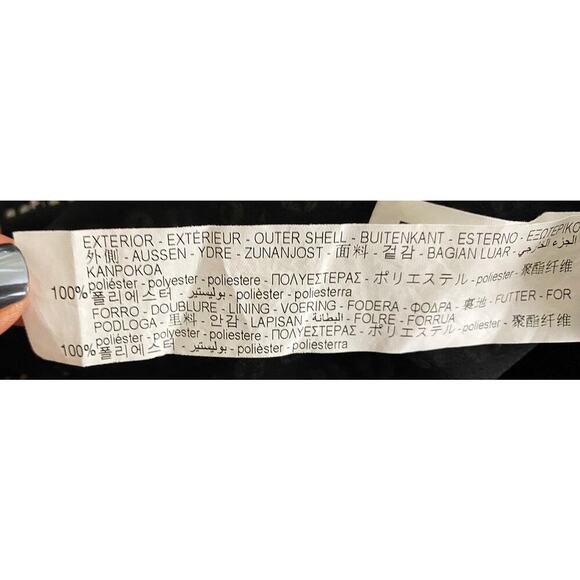 EXTERIOR - EXTÉRIEUR - OUTER SHELL - BUITENKANT - ESTERNO - ΕΞΩΤΕΡΙΚΟ
外側 - AUSSEN - YDRE - ZUNANJOST - 面料 - 겉감 - BAGIAN LUAR - الجزء الخارجي
KANPOKOA
poliéster - polyester - poliestere - ΠΟΛΥΕΣΤΕΡΑΣ - ポリエステル - poliester - 聚酯纤维
100% 폴리에스터 - بوليستير - polièster - poliesterra
FORRO - DOUBLURE - LINING - VOERING - FODERA - ΦΟΔΡΑ - 裏地 - FUTTER - FOR
PODLOGA - 里料 - 안감 - LAPISAN - البطانة - FOLRE - FORRUA
poliéster - polyester - poliestere - ΠΟΛΥΕΣΤΕΡΑΣ - ポリエステル - poliester - 聚酯纤维
100% 폴리에스터 - بوليستير - polièster - poliesterra